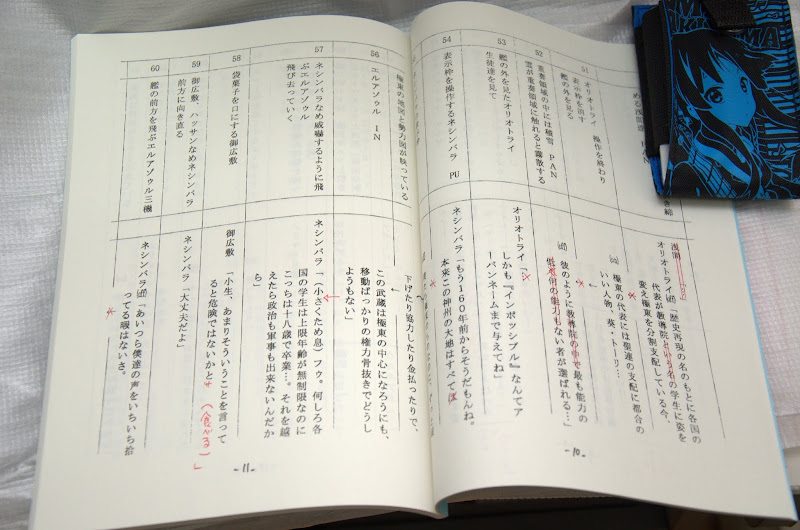 51
オリオトライ 操作を終わり
表示枠を消す
艦の外を見る
52
重奏領域の中には積雪 PAN
雪が重奏領域に触れると霧散する
53
艦の外を見たオリオトライ
生徒達を見て
54
表示枠を操作するネシンバラ PU
浅間
オリオトライ
「歴史再現の名のもとに各国の
代表が教導院という名の学生に姿を
変え極東を分割支配している今、
極東の代表には聖連の支配に都合の
いい人物、葵・トーリ…
彼のように教導院の中で最も能力の
ない者が選ばれる…」
オリオトライ「
しかも『インポッシブル』なんてア
ーバンネームまで与えてね」
ネシンバラ「もう160年前からそうだもんね。
本来この神州の大地はすべて
-10-
極東の地図と勢力図が映っている
56
エルアゾゥル IN
57
ネシンバラなめ威嚇するように飛
ぶエルアゾゥル
飛び去っていく
58
袋菓子を口にする御広敷
59
御広敷、ハッサンなめネシンバラ
前方に向き直る
60
艦の前方を飛ぶエルアゾゥル三機
下げたり協力したり金払ったりで、
この武蔵は極東の中心になろうにも、
移動ばっかりの権力骨抜きでどうし
ようもない」
ネシンバラ「(小さくため息)フゥ。何しろ各
国の学生は上限年齢が無制限なのに
こっちは十八歳で卒業…。それを越
えたら政治も軍事も出来ないんだか
ら」
御広敷
「小生、あまりそういうことを言って
ると危険ではないかと
(食べる)」
ネシンバラ「大丈夫だよ」
ネシンバラ
「あいつら僕達の声をいちいち拾
ってる暇はないさ。
-11-